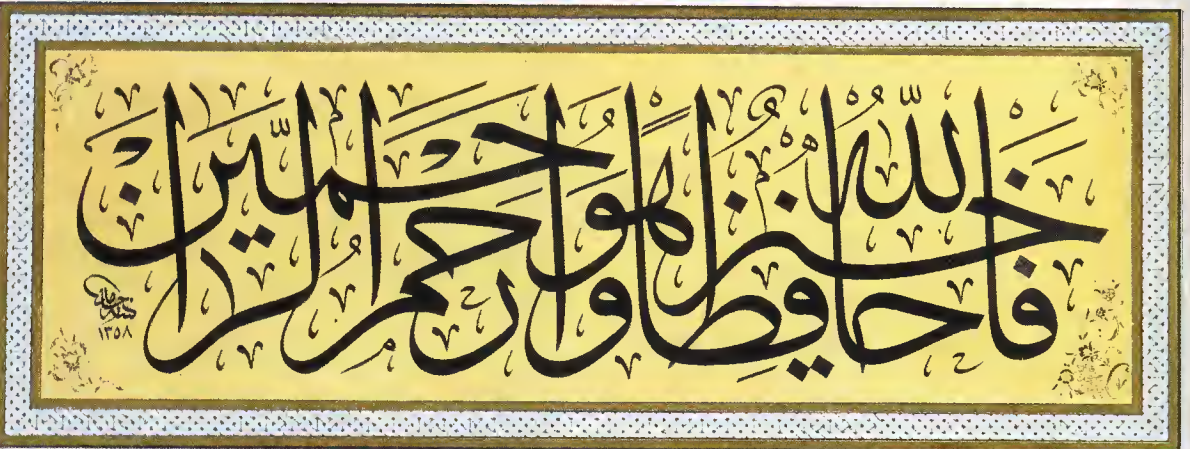 فَاللّٰهُ خَيْرٌ حَافِظًا وَهُوَ أَرْحَمُ الرَّاحِمِينَ
١٣٥٨